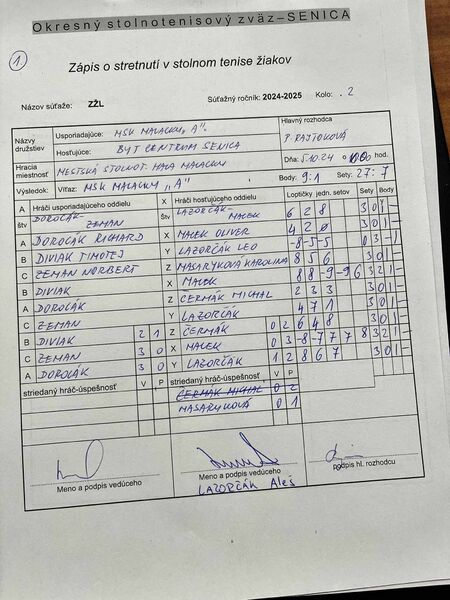 Okresný stolnotenisový zväz–SENICA
1
Zápis o stretnutí v stolnom tenise žiakov
Názov súťaže: ZŽL Súťažný ročník: 2024-2025 Kolo: . 2
Názvy družstiev Usporiadajúce: MSK MALACKY „A". Hlavný rozhodca
Hosťujúce: BYT CENTRUM SENICA P. RAJTOKOVÁ
Hracia miestnosť MESTSKÁ STOLNOT. HALA MALACKY Dňa: 5.10.24 o hod.
Výsledok: Víťaz: MSK MALACKY „A" Body: 9:1 Sety: 27:7
A Hráči usporiadajúceho oddielu X Hráči hosťujúceho oddielu Loptičky jedn. setov Sety Body
štv DOROČÁK- ZEMAN štv LAZORČÁK- MALEK 6 2 8 3 0 1 -
A DOROČÁK RICHARD X MALEK OLIVER 4 2 0 3 0 1 -
B DIVIAK TIMOTEJ Y LAZORČÁK LEO -8 -5 -5 0 3 - 1
C ZEMAN NORBERT Z MASARYKOVÁ KAROLINA 8 5 6 3 0 1 -
B DIVIAK X MALEK 8 8 -9 -9 6 3 2 1 -
A DOROČÁK Z ČERMÁK MICHAL 2 3 3 3 0 1 -
C ZEMAN Y LAZORČÁK 4 7 1 3 0 1 -
B DIVIAK 2 1 Z ČERMÁK 0 2 6 4 8 3 0 1 -
C ZEMAN 3 0 X MALEK 0 3 -8 -7 7 7 8 3 2 1 -
A DOROČÁK 3 0 Y LAZORČÁK 1 2 8 6 7 3 0 1 -
striedaný hráč-úspešnosť V P striedaný hráč-úspešnosť V P
ČERMÁK MICHAL 0 2
MASARYKOVÁ 0 1
Meno a podpis vedúceho Meno a podpis vedúceho podpis hl. rozhodcu
LAZORČÁK Aleš